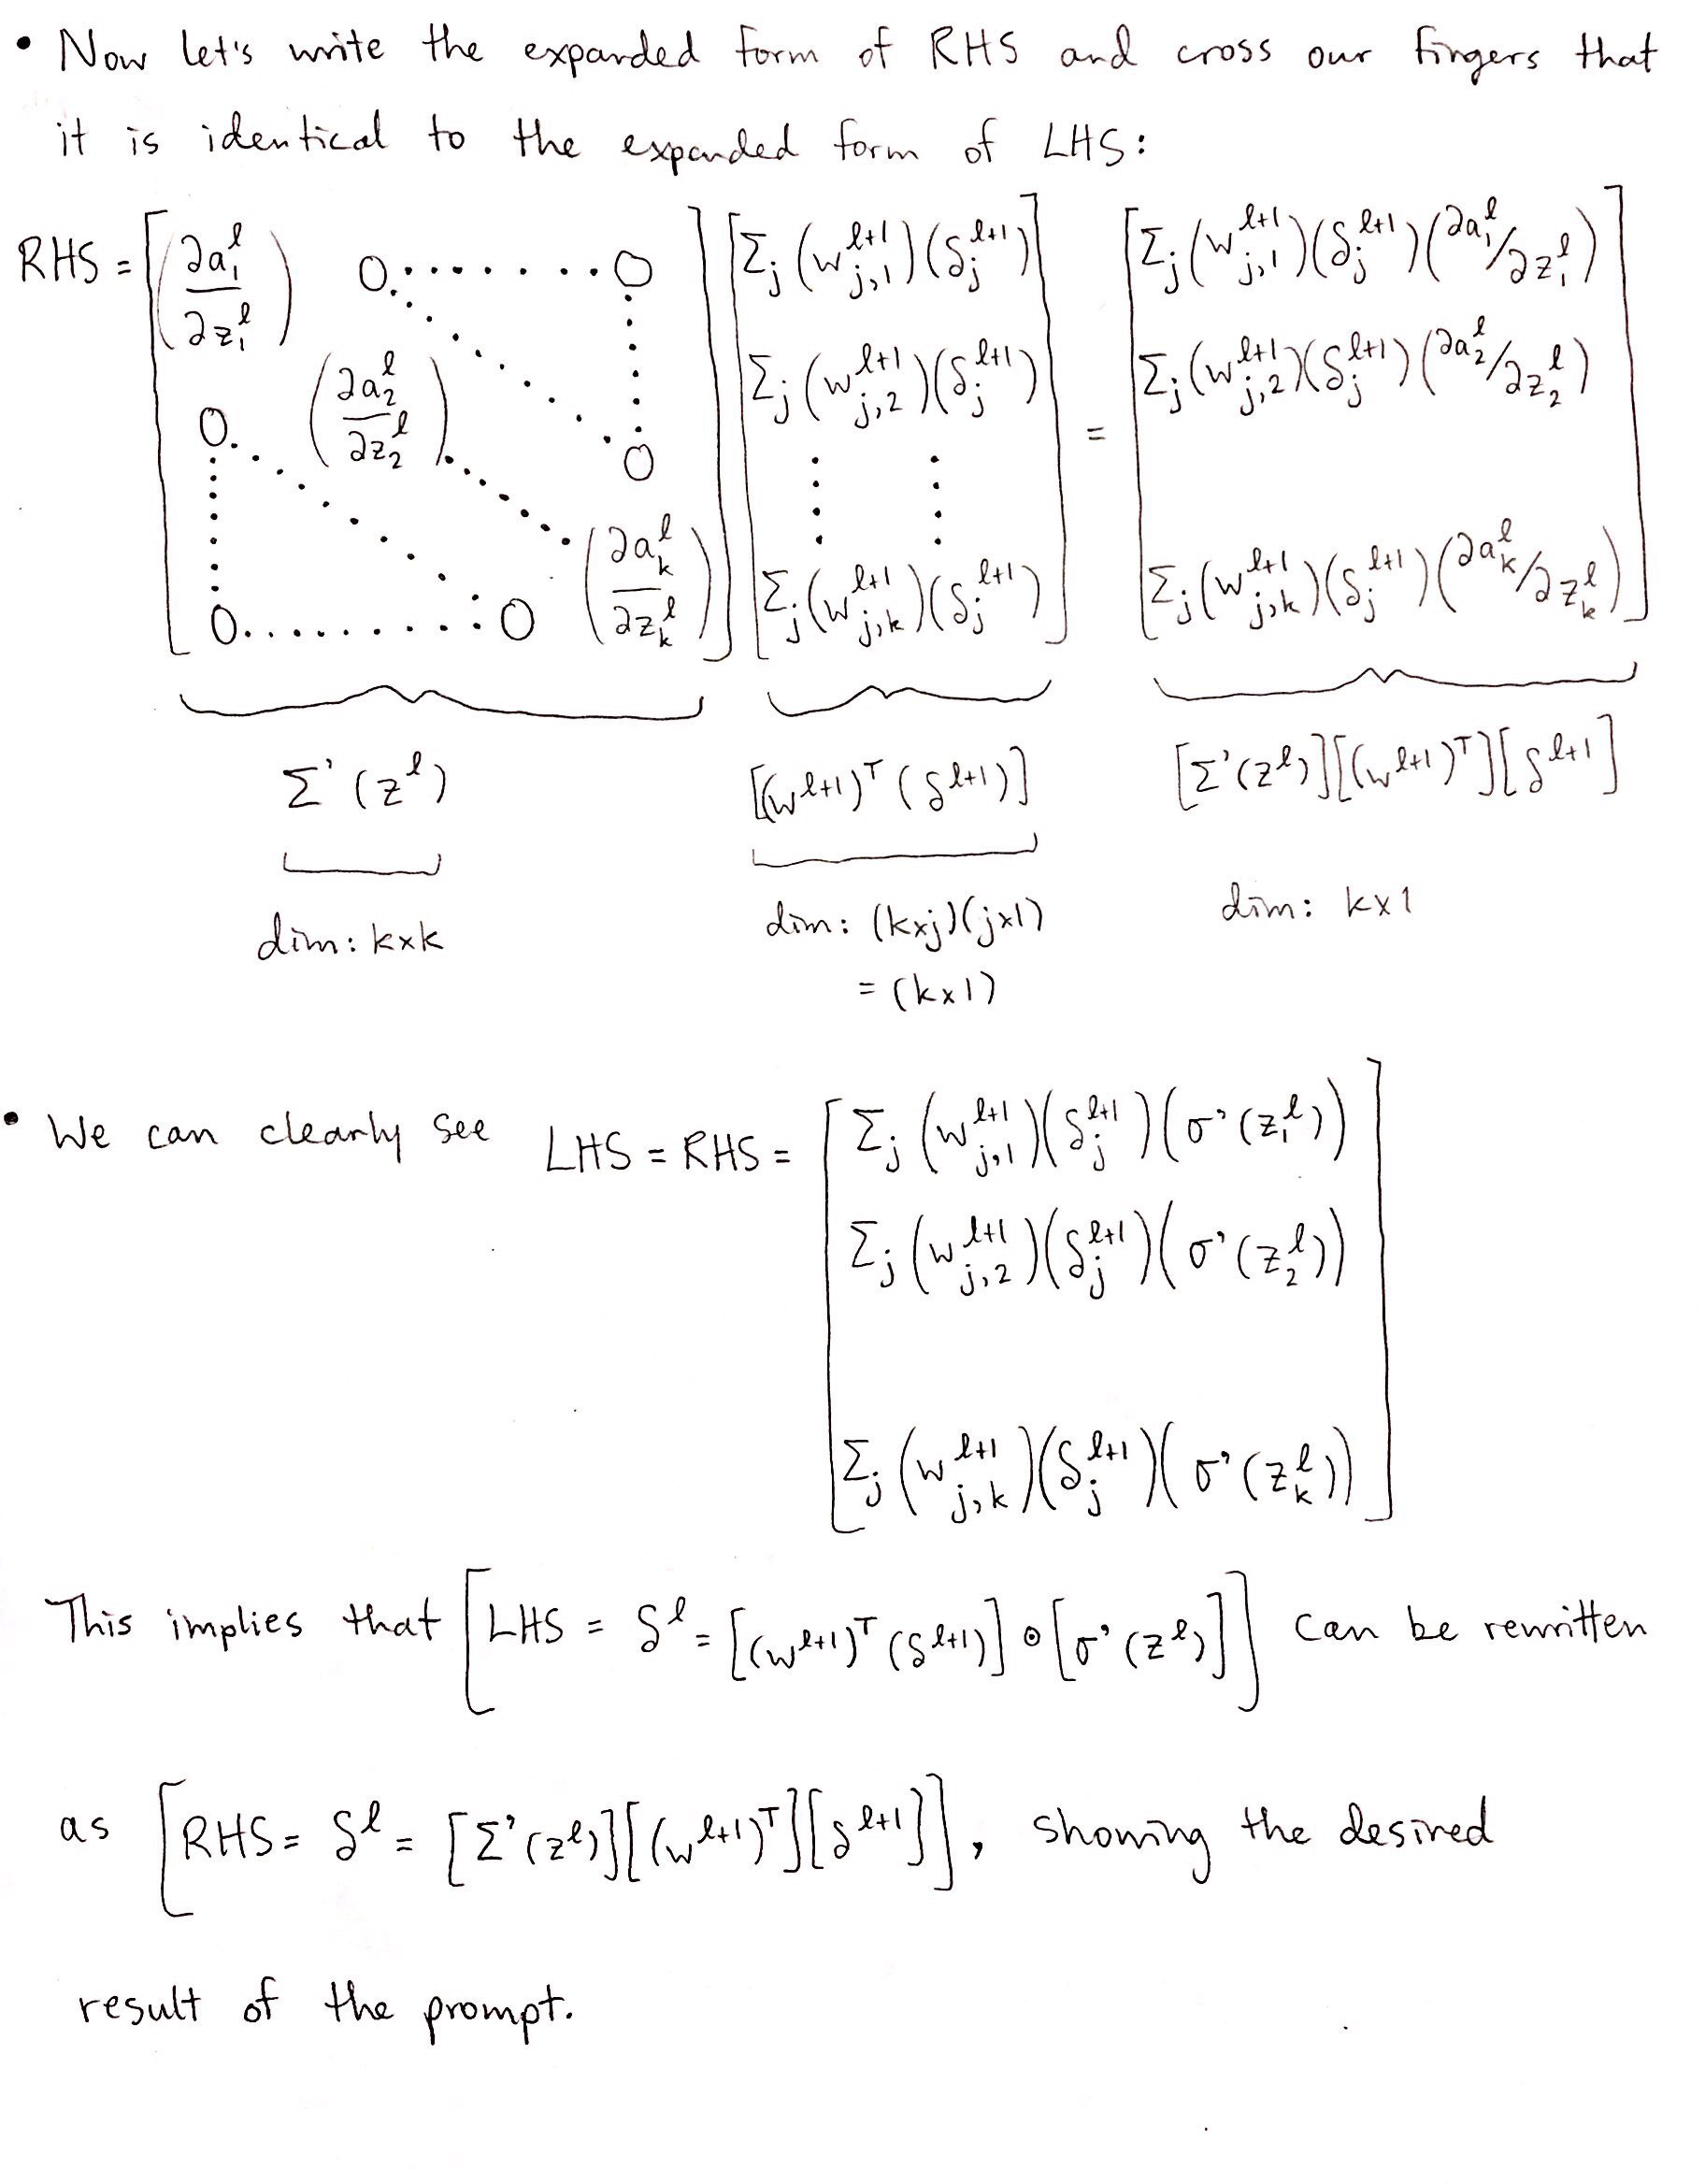 • Now let's write the expanded form of RHS and cross our fingers that
it is identical to the expanded form of LHS:
RHS = [ (∂a₁ˡ/∂z₁ˡ) 0 ....... 0 ; 0 (∂a₂ˡ/∂z₂ˡ) ..... 0 ; 0 ......... 0 (∂aₖˡ/∂zₖˡ) ] [ Σⱼ (wⱼ,₁ˡ⁺¹)(δⱼˡ⁺¹) ; Σⱼ (wⱼ,₂ˡ⁺¹)(δⱼˡ⁺¹) ; ⋮ ⋮ ; Σⱼ (wⱼ,ₖˡ⁺¹)(δⱼˡ⁺¹) ] = [ Σⱼ (wⱼ,₁ˡ⁺¹)(δⱼˡ⁺¹)(∂a₁ˡ/∂z₁ˡ) ; Σⱼ (wⱼ,₂ˡ⁺¹)(δⱼˡ⁺¹)(∂a₂ˡ/∂z₂ˡ) ; Σⱼ (wⱼ,ₖˡ⁺¹)(δⱼˡ⁺¹)(∂aₖˡ/∂zₖˡ) ]
Σ'(zˡ) [(wˡ⁺¹)ᵀ (δˡ⁺¹)] [Σ'(zˡ)][(wˡ⁺¹)ᵀ][δˡ⁺¹]
dim: k×k dim: (k×j)(j×1) dim: k×1
= (k×1)
• We can clearly see LHS = RHS = [ Σⱼ (wⱼ,₁ˡ⁺¹)(δⱼˡ⁺¹)(σ'(z₁ˡ))
Σⱼ (wⱼ,₂ˡ⁺¹)(δⱼˡ⁺¹)(σ'(z₂ˡ))
Σⱼ (wⱼ,ₖˡ⁺¹)(δⱼˡ⁺¹)(σ'(zₖˡ)) ]
This implies that [LHS = δˡ = [(wˡ⁺¹)ᵀ (δˡ⁺¹)] ⊙ [σ'(zˡ)]] can be rewritten
as [RHS = δˡ = [Σ'(zˡ)][(wˡ⁺¹)ᵀ][δˡ⁺¹]], showing the desired
result of the prompt.